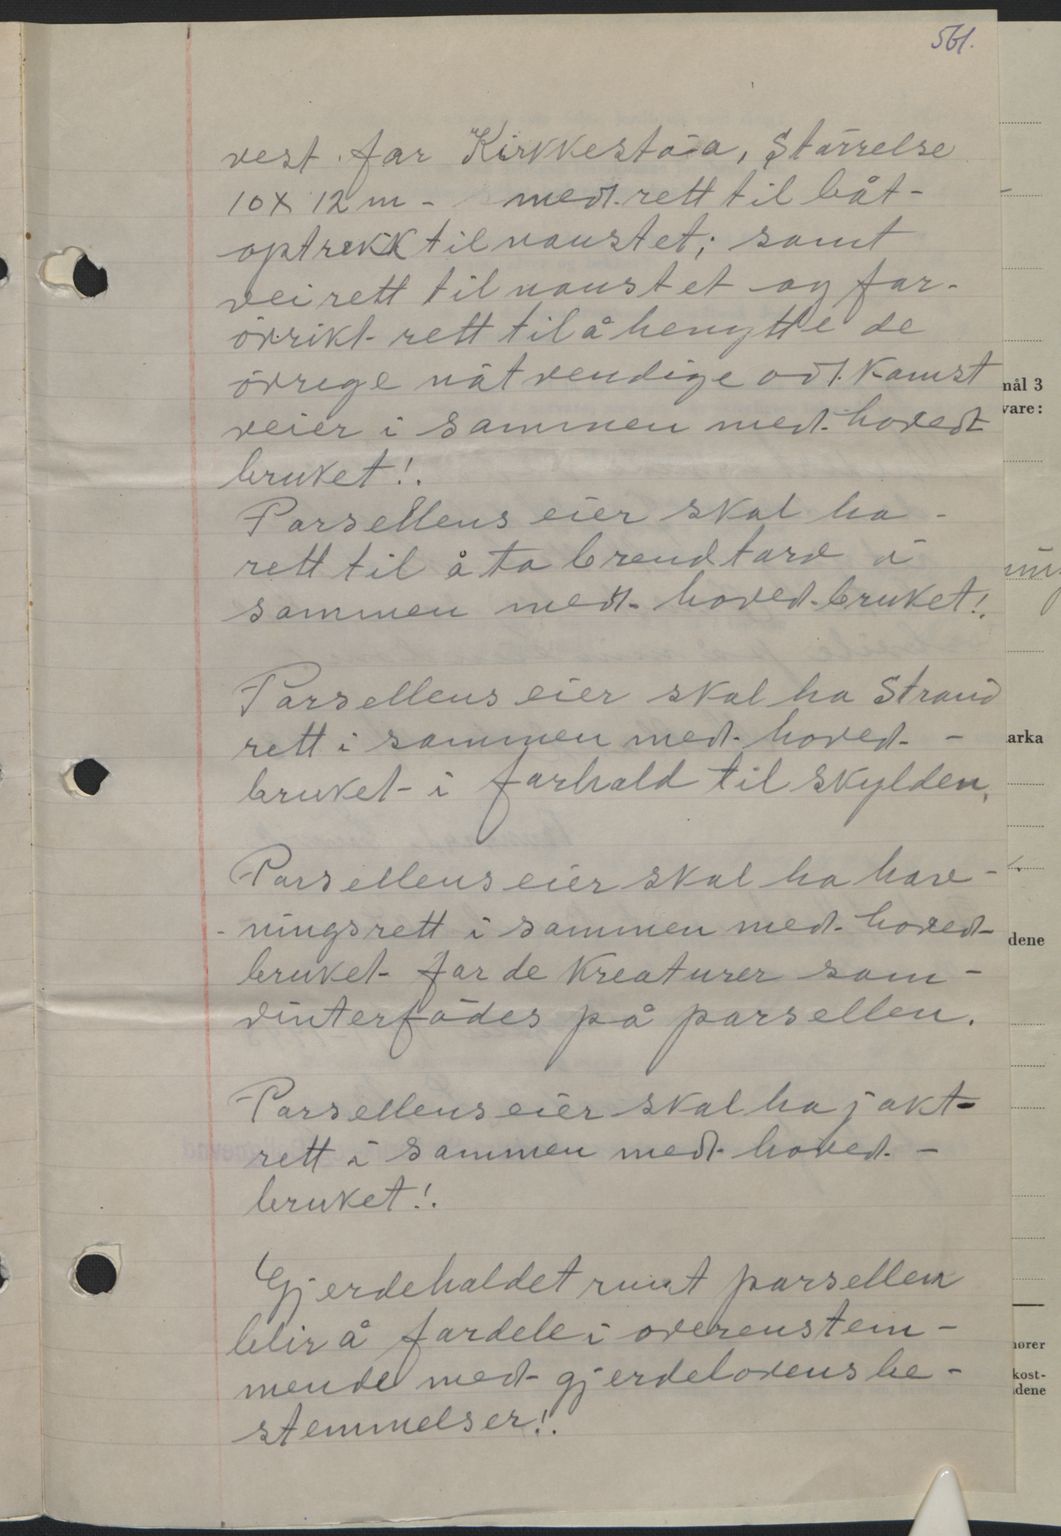 561.
vest for Kirkkestöa, Störrelse
10 X 12 m - med rett til båt-
optrekk til naustet; samt
veirett til naustet og for-
övrikt rett til å benytte de
övrege nötvendige adkomst
veier i sammen med hoved-
bruket!.
Parsellens eier skal ha -
rett til å ta brendtorv i
sammen med hoved-bruket!.
Parsellens eier skal ha Strand
rett i sammen med hoved- -
bruket i forhold til skylden.
Parsellens eier skal ha hav-
ningsrett i sammen med hoved-
bruket for de Kreaturer som -
vinterfödes på parsellen.
Parsellens eier skal ha jakt-
rett i sammen med hoved- -
bruket!.
Gjerdeholdet runt parsellen
blir å fordele i overenstem-
mende med gjerdelovens be-
stemmelser!.
mål 3
vare:
arka
dene
hører
kost-
dene